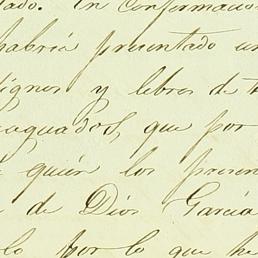 tado. En confirmació
habria presentado un
dignos y libres de t
raguados, que por
quién los presen
de Dios Garcia
lo por lo que he